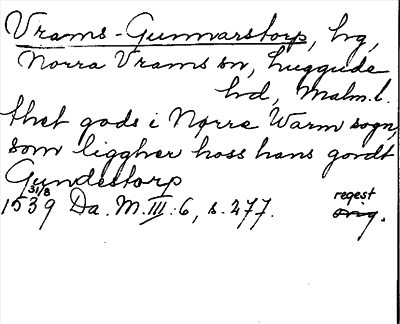 Vrams-Gunnarstorp, hg,
Norra Vrams sn, Luggude
hd, Malm. l.
thet gods i Nørre Warm sogn,
som liggher hoss hans gordt
Gundestorp
31/8
1539 Da. M. III: 6, s. 277.
regest
orig.